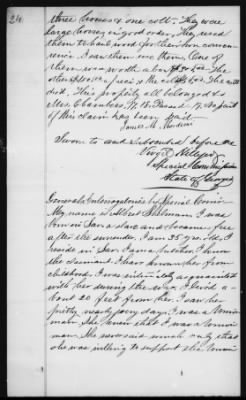 24
three horses & one colt. They were
large horses in good order. They used
them to haul wood for their own conven-
ience. I saw them use them. One of
them was worth about
The
other & the colt
died. This property all belonged to
Mrs. Chambers.
No part
of this claim has been paid
James M.
Sworn to and Subscribed before me
Virgil Hillyer
Special Commissioner
State of Georgia
General Interrogatories by Special Comr.
My name is I was
born in a slave and became free
after the surrender. I am 35 yrs. old. I
reside in I know
the Claimant. I have known her from
childhood. I was intimately acquainted
with her during the war. I lived a-
bout 20 feet from her. I saw her
pretty nearly every day. I was a Union
man. She knew that I was a Union
man. She never said much only that
she was willing to support the Union